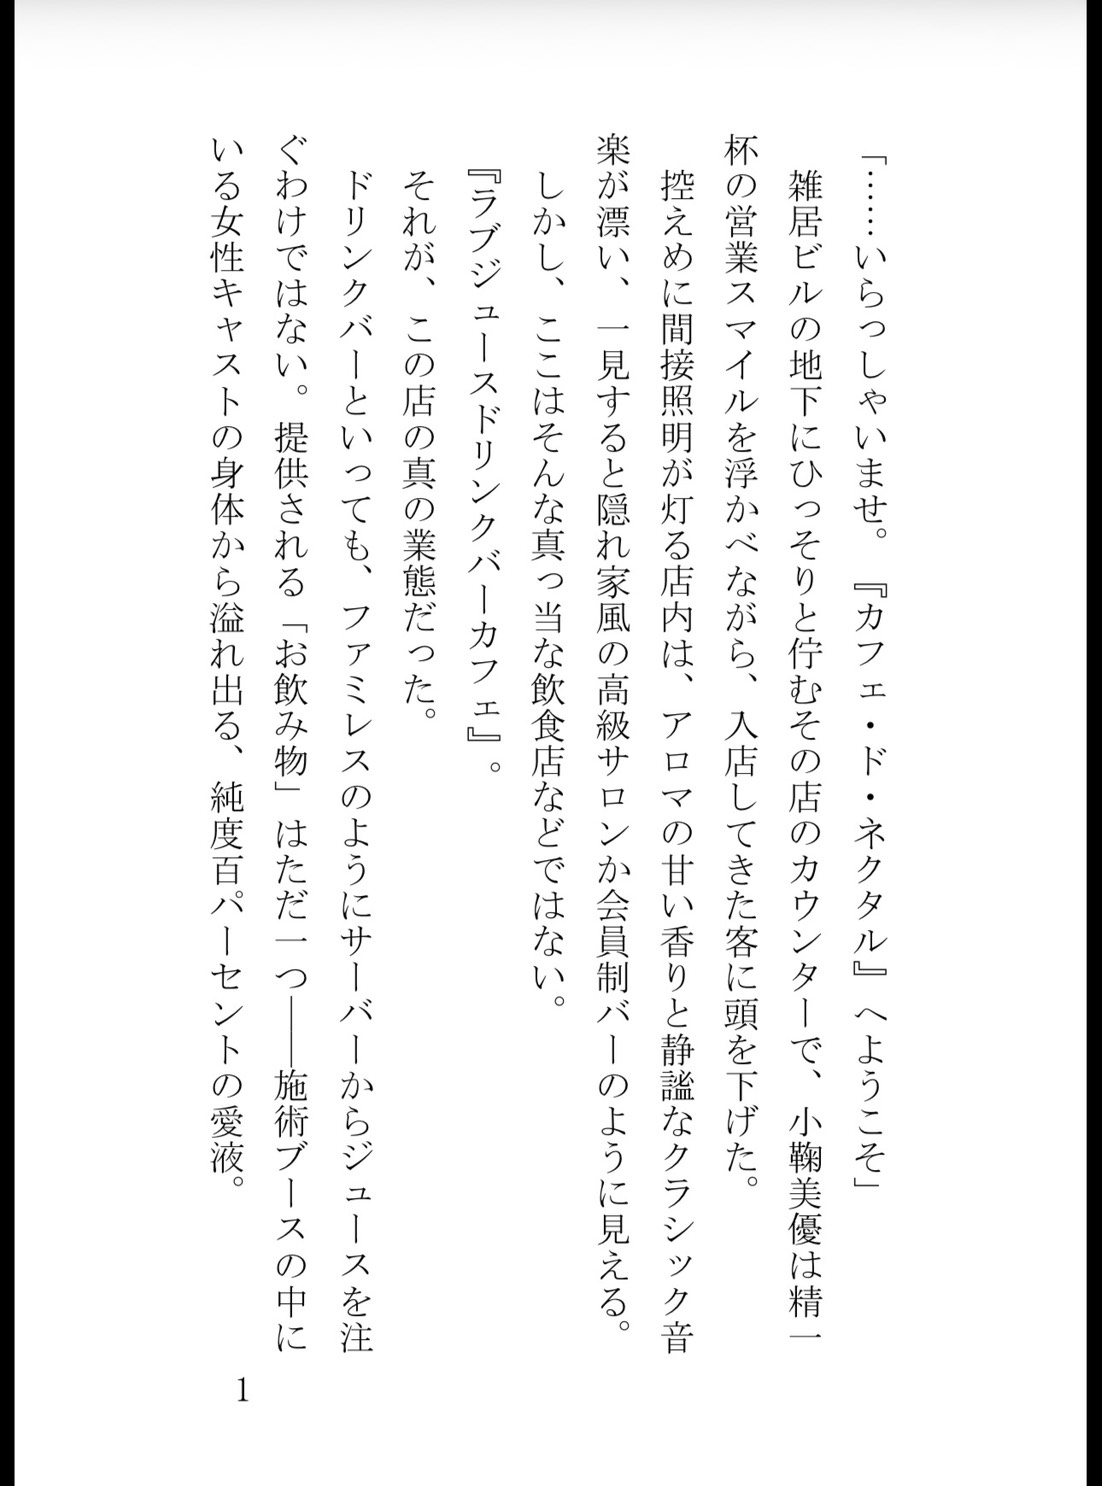 「……いらっしゃいませ。『カフェ・ド・ネクタル』へようこそ」
雑居ビルの地下にひっそりと佇むその店のカウンターで、小鞠美優は精一
杯の営業スマイルを浮かべながら、入店してきた客に頭を下げた。
控えめに間接照明が灯る店内は、アロマの甘い香りと静謐なクラシック音
楽が漂い、一見すると隠れ家風の高級サロンか会員制バーのように見える。
しかし、ここはそんな真っ当な飲食店などではない。
『ラブジュースドリンクバーカフェ』。
それが、この店の真の業態だった。
ドリンクバーといっても、ファミレスのようにサーバーからジュースを注
ぐわけではない。提供される「お飲み物」はただ一つ――施術ブースの中に
いる女性キャストの身体から溢れ出る、純度百パーセントの愛液。
1